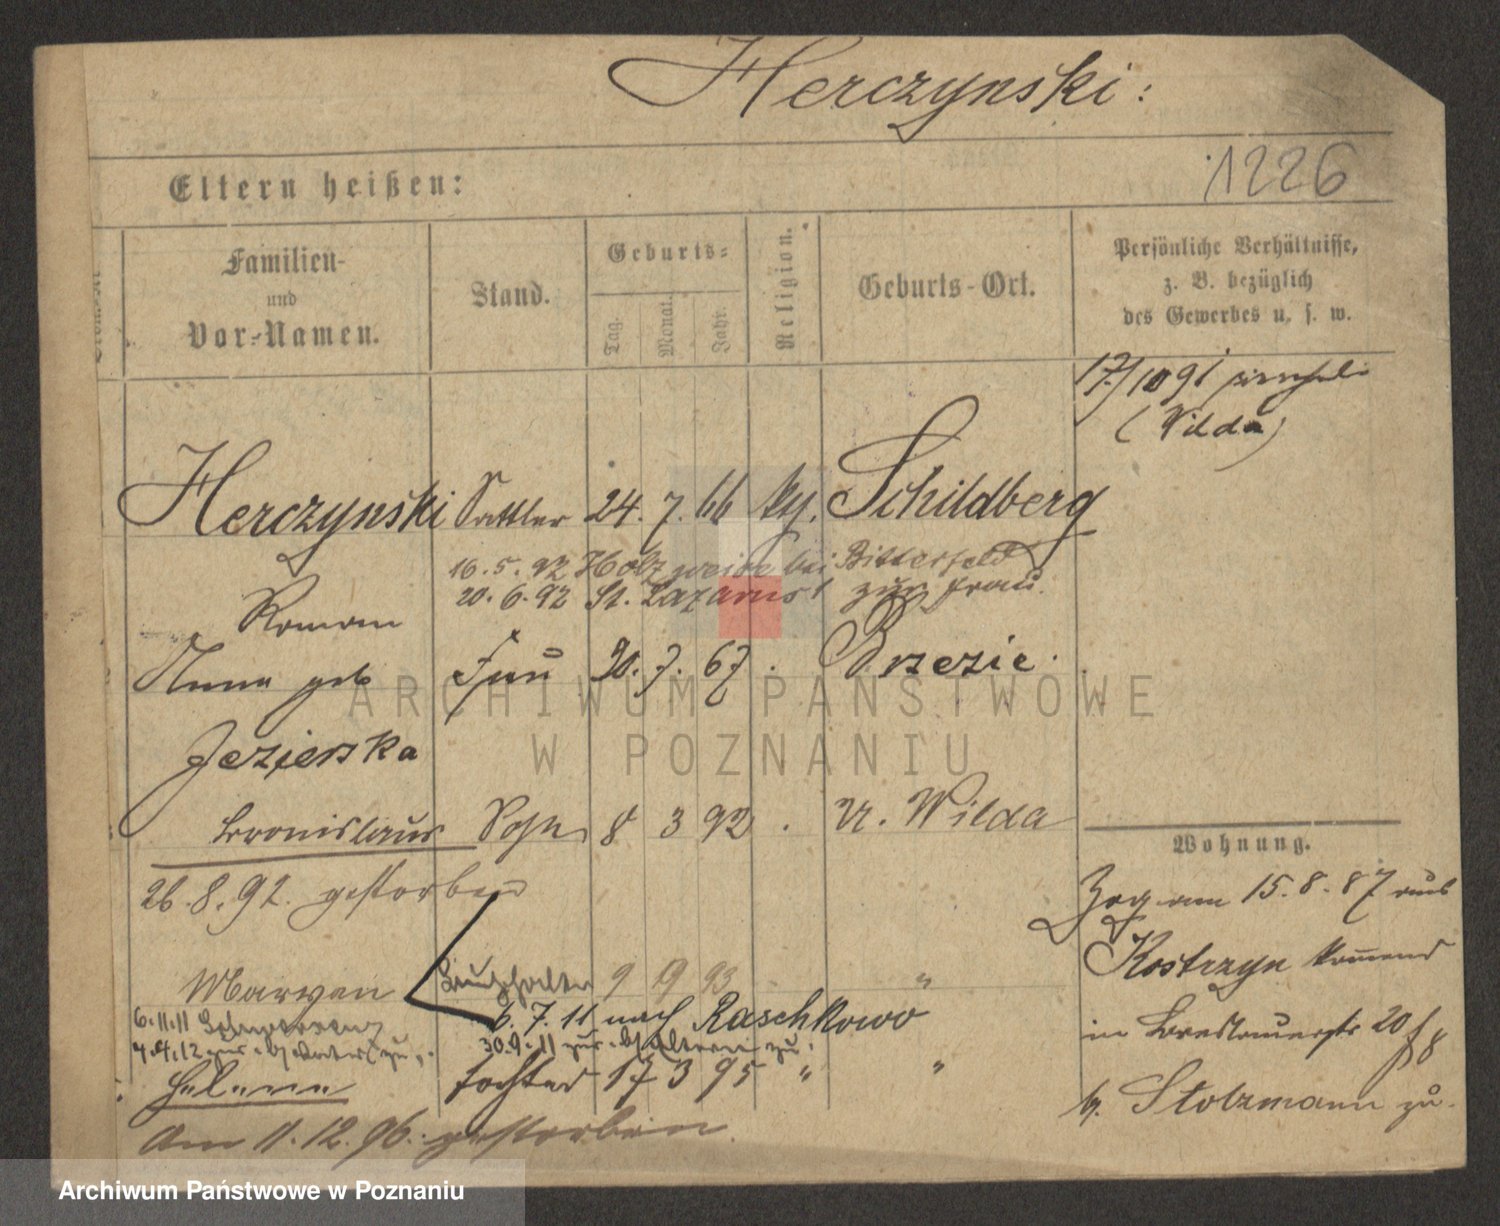 Herczynski:
1226
Eltern heißen:
Familien-
und
Vor-Namen.
Stand.
Geburts-
Tag.
Monat.
Jahr.
Religion.
Geburts-Ort.
Persönliche Verhältnisse,
z. B. bezüglich
des Gewerbes u. s. w.
17/10 91
(Wilda)
Herczynski Sattler 24. 7. 66 ky. Schildberg
16. 5. 92 Holzweide bei Bitterfeld
20. 6. 92 St. Lazarus zur Frau.
Roman
Anna geb Frau 20. 7. 67. Brzezie.
Jezierska
Bronislaus Sohn 8 3 92. U. Wilda
26. 8. 92. gestorben
Wohnung.
Zog am 15. 8. 87 aus
Kostrzyn kommend
in Breslauerstr 20
b. Stolzmann zu.
Maryan 9 9 93 "
6. 7. 11 nach Raschkowo
6.11.11
4.4.12 zur
30.9.11 zur Eltern zu.
Helene Tochter 17 3 95 " "
Am 11. 12. 96. gestorben.
ARCHIWUM PAŃSTWOWE
W POZNANIU
Archiwum Państwowe w Poznaniu